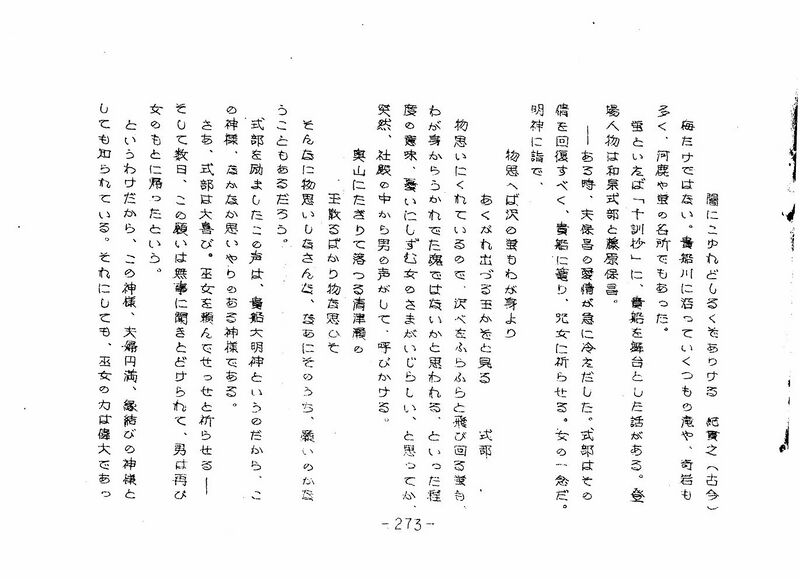 闇にこゆれどしるくぞありける　紀貫之（古今）
梅だけではない。貴船川に沿っていくつもの滝や、奇岩も
多く、河鹿や蛍の名所でもあった。
蛍といえば「十訓抄」に、貴船を舞台とした話がある。登
場人物は和泉式部と藤原保昌。
――ある時、夫保昌の愛情が急に冷えだした。式部はその
情を回復すべく、貴船に篭り、巫女に祈らせる。女の一念だ。
明神に詣で、
物思へば沢の蛍もわが身より
あくがれ出づる玉かぞと見る　式部
物思いにくれているので、沢べをふらふらと飛び回る蛍も、
わが身からうかれでた魂ではないかと思われる、といった程
度の意味、憂いにしずむ女のさまがいじらしい、と思ってか、
突然、社殿の中から男の声がして、呼びかける。
奥山にたぎりて落つる滝津瀬の
玉散るばかり物な思ひそ
そんなに物思いしなさんな、なあにそのうち、願いのかな
うこともあるだろう。
式部を励ましたこの声は、貴船大明神というのだから、こ
の神様、なかなか思いやりのある神様である。
さあ、式部は大喜び。巫女を頼んでせっせと祈らせる――
そして数日、この願いは無事に聞きとどけられて、男は再び
女のもとに帰ったという。
というわけだから、この神様、夫婦円満、縁結びの神様と
しても知られている。それにしても、巫女の力は偉大であっ
-273-